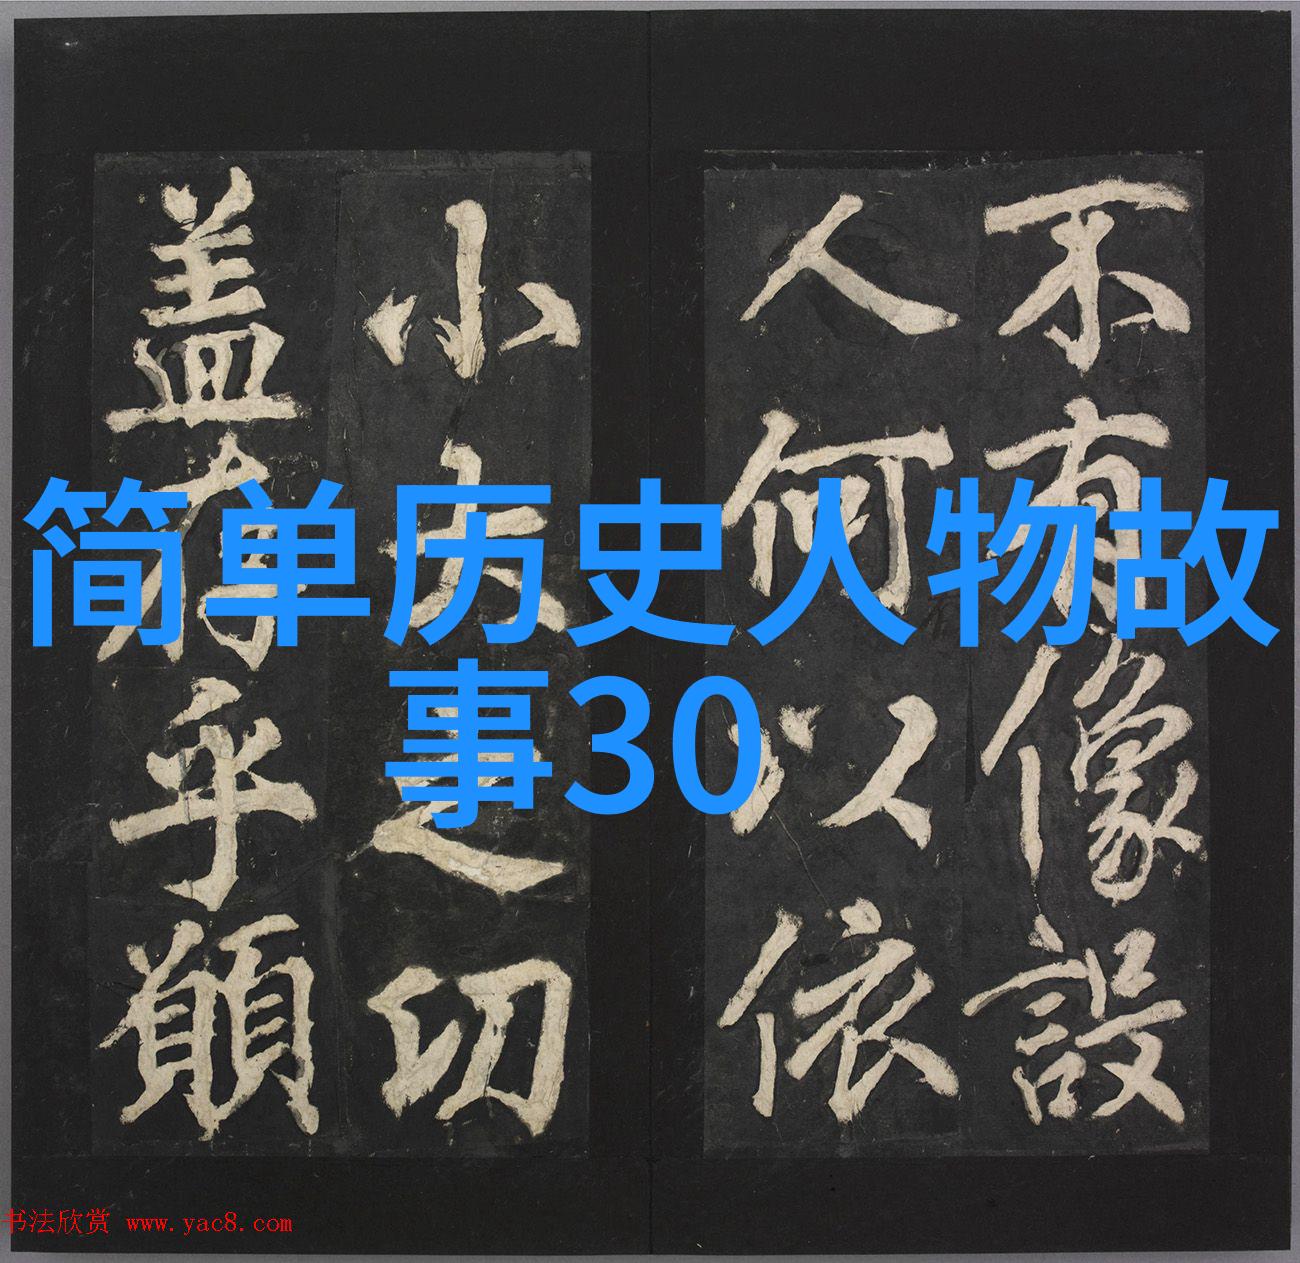 简单历史人物故
事30
不有像設
人何以依
小大之切
盖乎願
书法欣赏 www.yac8.com